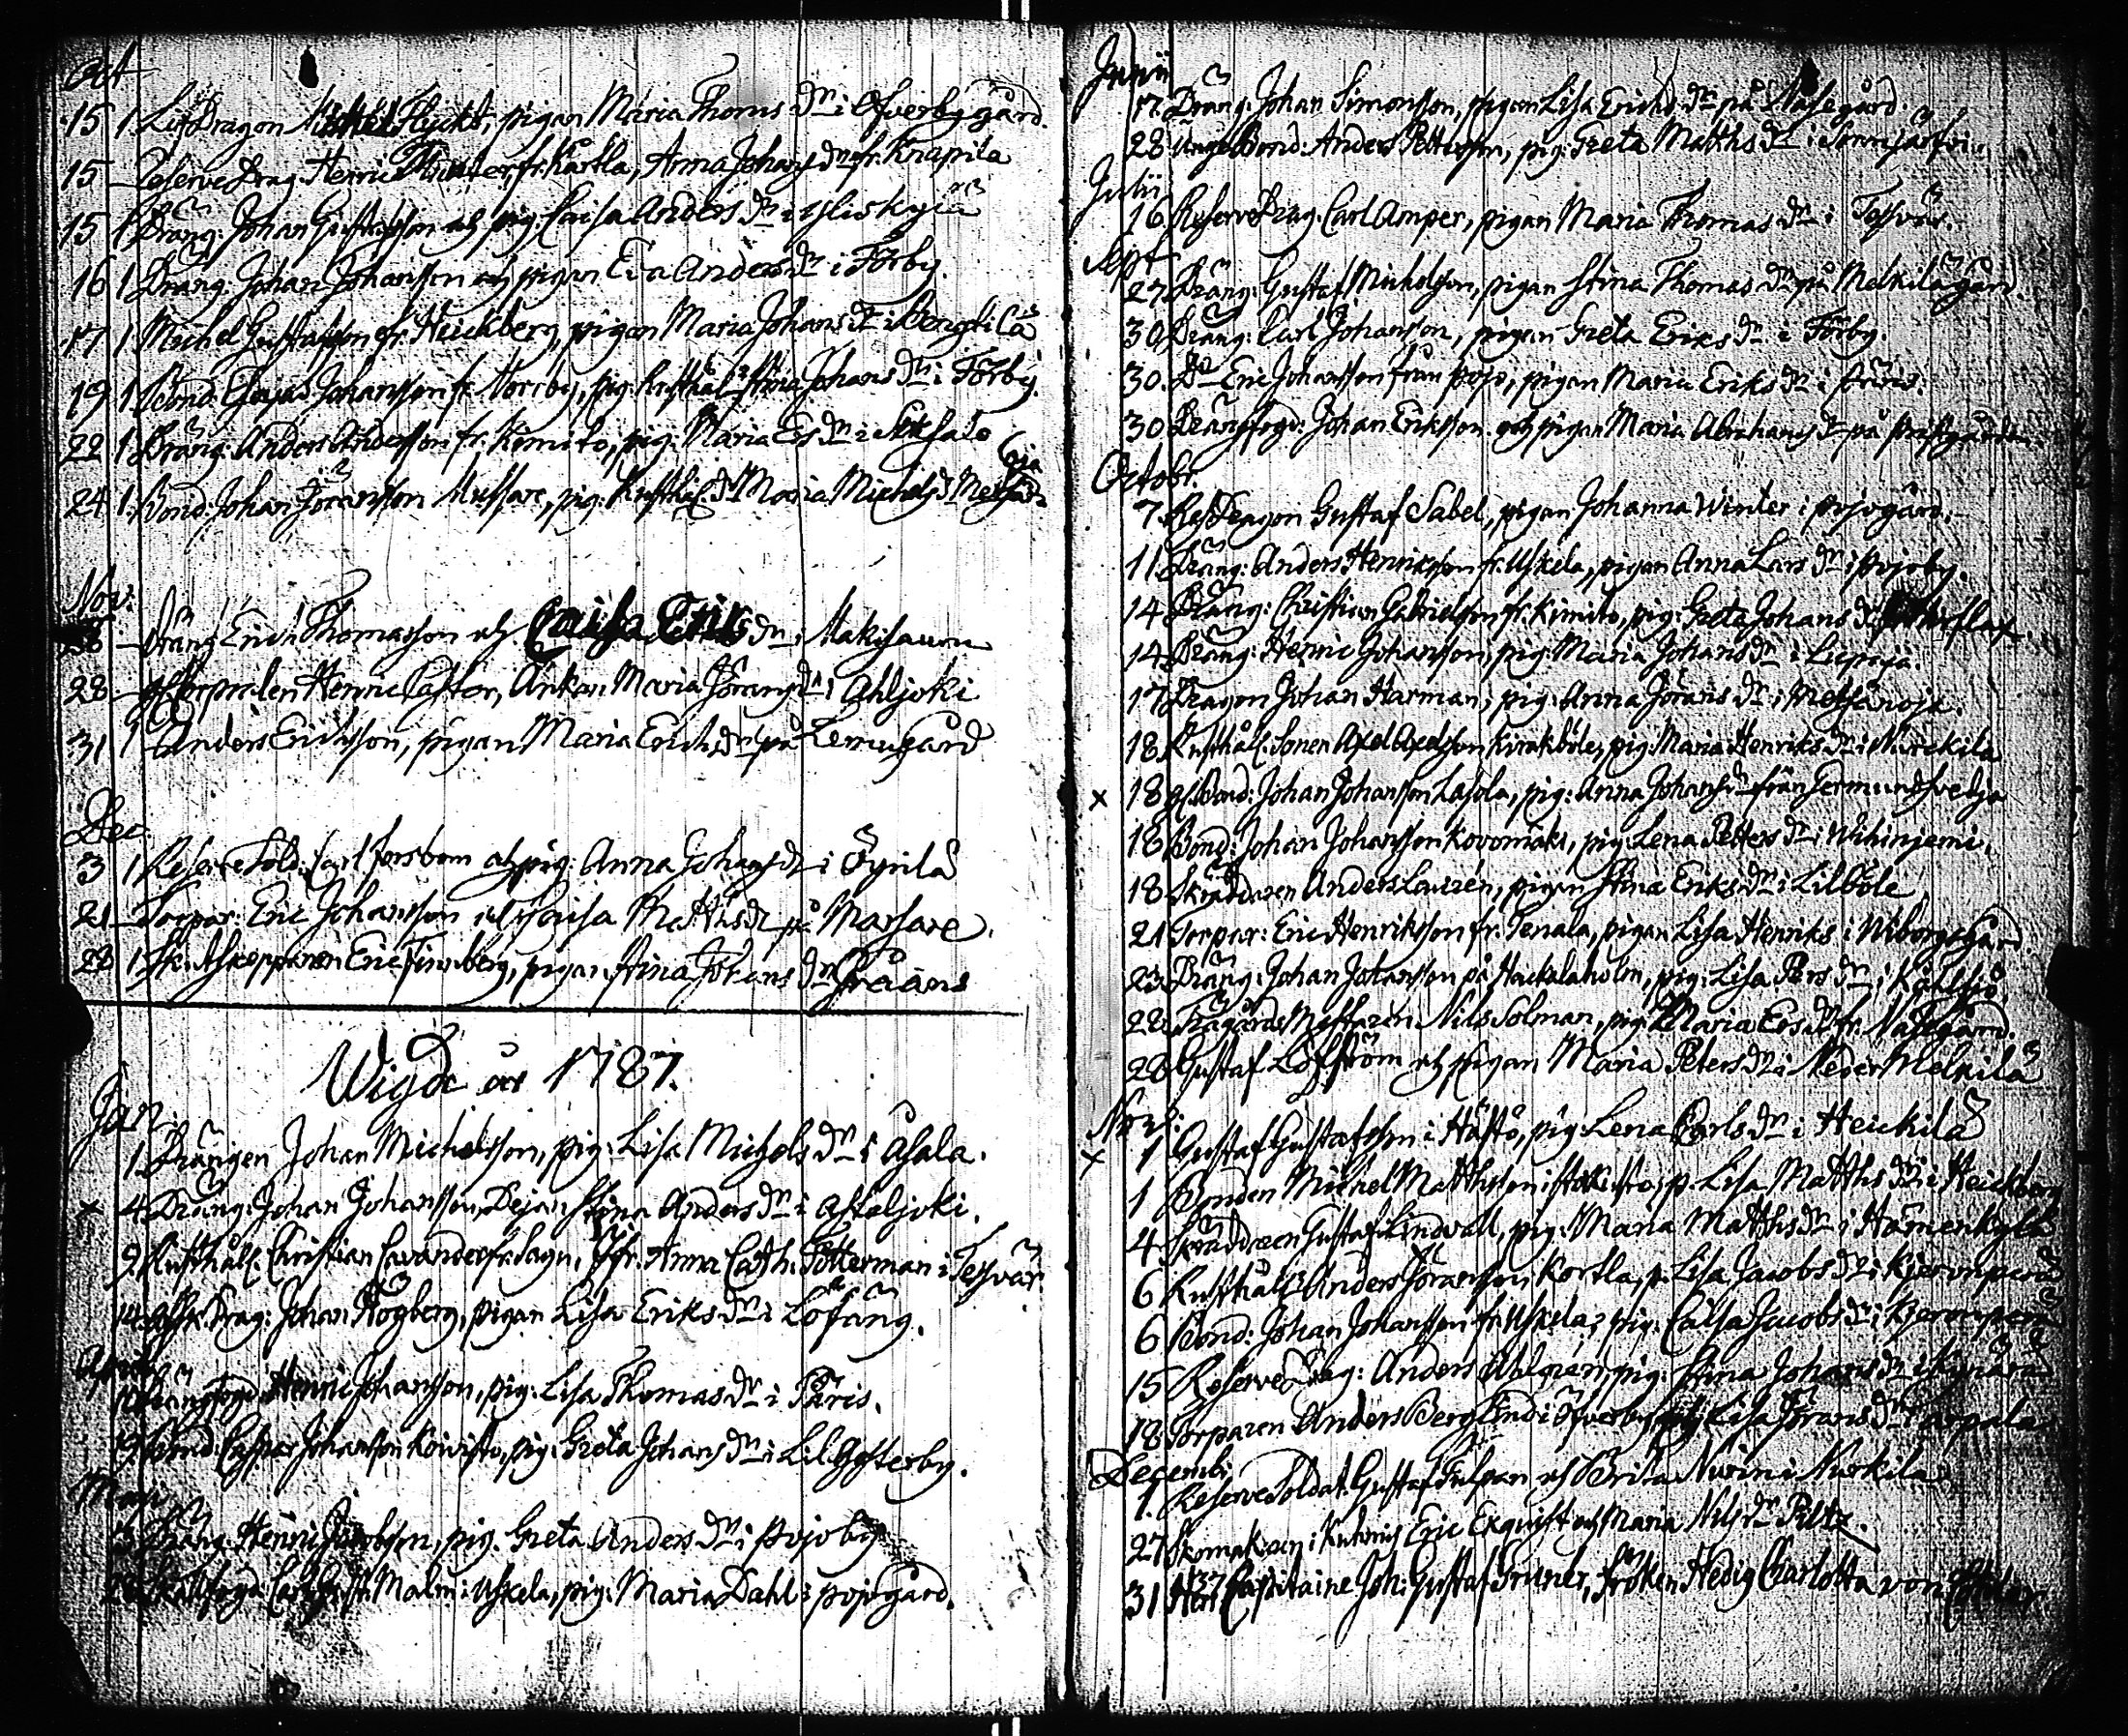 Oct
15 1 LifDragon Michel Flyckt, pigan Maria Thoms dr i Öfverby gård.
15 – Reserve Drag. Henric Winter fr. Kärkla, Anna Johans dr fr. Knapila
15 1 Dräng: Johan Gustafsson och pig. Caisa Anders dr i Yliskylä
16 1 Dräng: Johan Johansson och pigan Eva Anders dr i Förby.
17 1 Michel Gustafsson fr. Heickberg, pigan Maria Johans dr i Pengkilä
19 1 Bond. Johansson fr. Norrby, pig. Rusthål. Stina Johans dr i Förby.
22 1 Dräng. Anders Andersson fr. Kimito, pig: Maria Ers dr i Kiksalo
24 1 Bond. Johan Göransson Mussare, pig. Rusthål. dr Maria Michels dr Metsän
oja
Nov:
28 – Dräng Erich Thomasson och Caisa Eriks dr i Makisauru
28 – Corporalen Henric Castor, Änkan Maria Jörans dr i Ahljoki
31 1 Anders Ericksson, pigan Maria Erichs dr på Lemugård
Dec.
3 1 Reserve Sold: Carl Forsbom och pig: Anna Johans dr i Öyrilä
21 – Torpar: Eric Johansson och Caisa Matths dr på Marsare.
28 1 Sk. Skepparen Eric Finnberg, pigan Stina Johans dr
Wigde år 1787.
Jan.
1 Drängen Johan Michelsson, pig: Lisa Michels dr i Asala.
× 4 Dräng: Johan Johansson, Dejan Stina Anders dr i Asteljoki.
9 Rusthåll. Christian Cavander fr. Sagu, Jfr. Anna Cath: Fotterman i Tessvär.
14 Drag: Johan Högberg, pigan Lisa Eriks dr i Löfäng.
April
Drängfogd: Henric Johansson, pig: Lisa Thomas dr i Päris.
9 Bond: Caspar Johansson Koivisto, pig: Greta Johans dr i Lilgysterby.
Maji
13 Dräng Henric Jacobsson, pig. Greta Anders dr i Pojo by
28 Malm i Uskela, pig: Maria Dahl i pojogård.
Junii
17. Dräng: Johan Simonsson, pigan Lisa Erichs dr på Näsegård.
28 Unge Bond: Anders Pettersson, pig: Greta Matths dr i Sonnjärfvi.
Julii
16 Reserve Drag: Carl Amper, pigan Maria Thomas dr i Tessvär.
Sept
27 Dräng: Gustaf Michelsson, pigan Stina Thomas dr på Melkilägård.
30 Dräng: Carl Johansson, pigan Greta Eriks dr i Förby.
30. Do Eric Johansson från pojo, pigan Maria Eriks dr i Päris.
30 Drängfogd: Johan Eriksson och pigan Maria Abrahams dr på prästgården.
Octobr.
7. Res Dragon Gustaf Sabel, pigan Johanna Winter i pojogård.
11 Dräng: Anders Henriksson fr. Uskela, pigan Anna Lars dr i pojoby.
14 Dräng: Christian Gabrielsson fr. Kimito, pig: Greta Johans dr
14 Dräng: Henric Johansson, pig: Maria Johans dr i Lupaja.
17 Dragon Johan Harman, pig: Anna Jörans dr i Metsänoja.
18 Rusthåll: Sonen Axel Axelsson Kirakböle, pig: Maria Henriks dr i Nurckila
× 18 Bond: Johan Johansson Lasola, pig: Anna Johans dr från Germundsvedja
18 Bond: Johan Johansson Kovomäki, pig: Lena Petters dr i Wihinjemi.
18 Skräddaren Anders Lauren, pigan Stina Eriks dr i Lilböle
21 Torpar: Eric Henriksson fr. Tenala, pigan Lisa Henriks i Wiborgsgård
23 Dräng: Johan Johansson på Hackalaholm, pig: Lisa Pers dr i
28 Trägårds Mestaren Nils Solman, pig: Maria Ers dr fr. Näsegård.
28 Gustaf Löfström och pigan Maria Peters dr i Neder Melkilä
Nov:
× 1 Gustaf Gustafsson i Hästö, pig: Lena Carls dr i Heickilä
1 Bonden Michel Matthsson i p. Lisa Matths dr i Heickberg
4 Skräddaren Gustaf Lindvall, pig: Maria Matths dr i Hämenkylä
6 Rusthåll: Anders Jöransson Kortla, p. Lisa Jacobs dr i Kjeronperä
6 Bond: Johan Johansson fr. Uskela, pig: Caisa Jacobs dr i Kjeronperä
15 Reserve Drag: Anders Ahlgren, pig: Stina Johans dr i
18 Torparen Anders Berglind i Öfverby, pig Lisa Jörans dr i Arpala
Decembr
1. Reserve Soldat Gustaf Tulpan och Brita Nurin i Nurkila
27 Skomakaren i Eric Exquist och Maria Nils dr Piltz.
31 Herr Capitaine Joh: Gustaf Gruner, Fröken Hedig Charlotta von